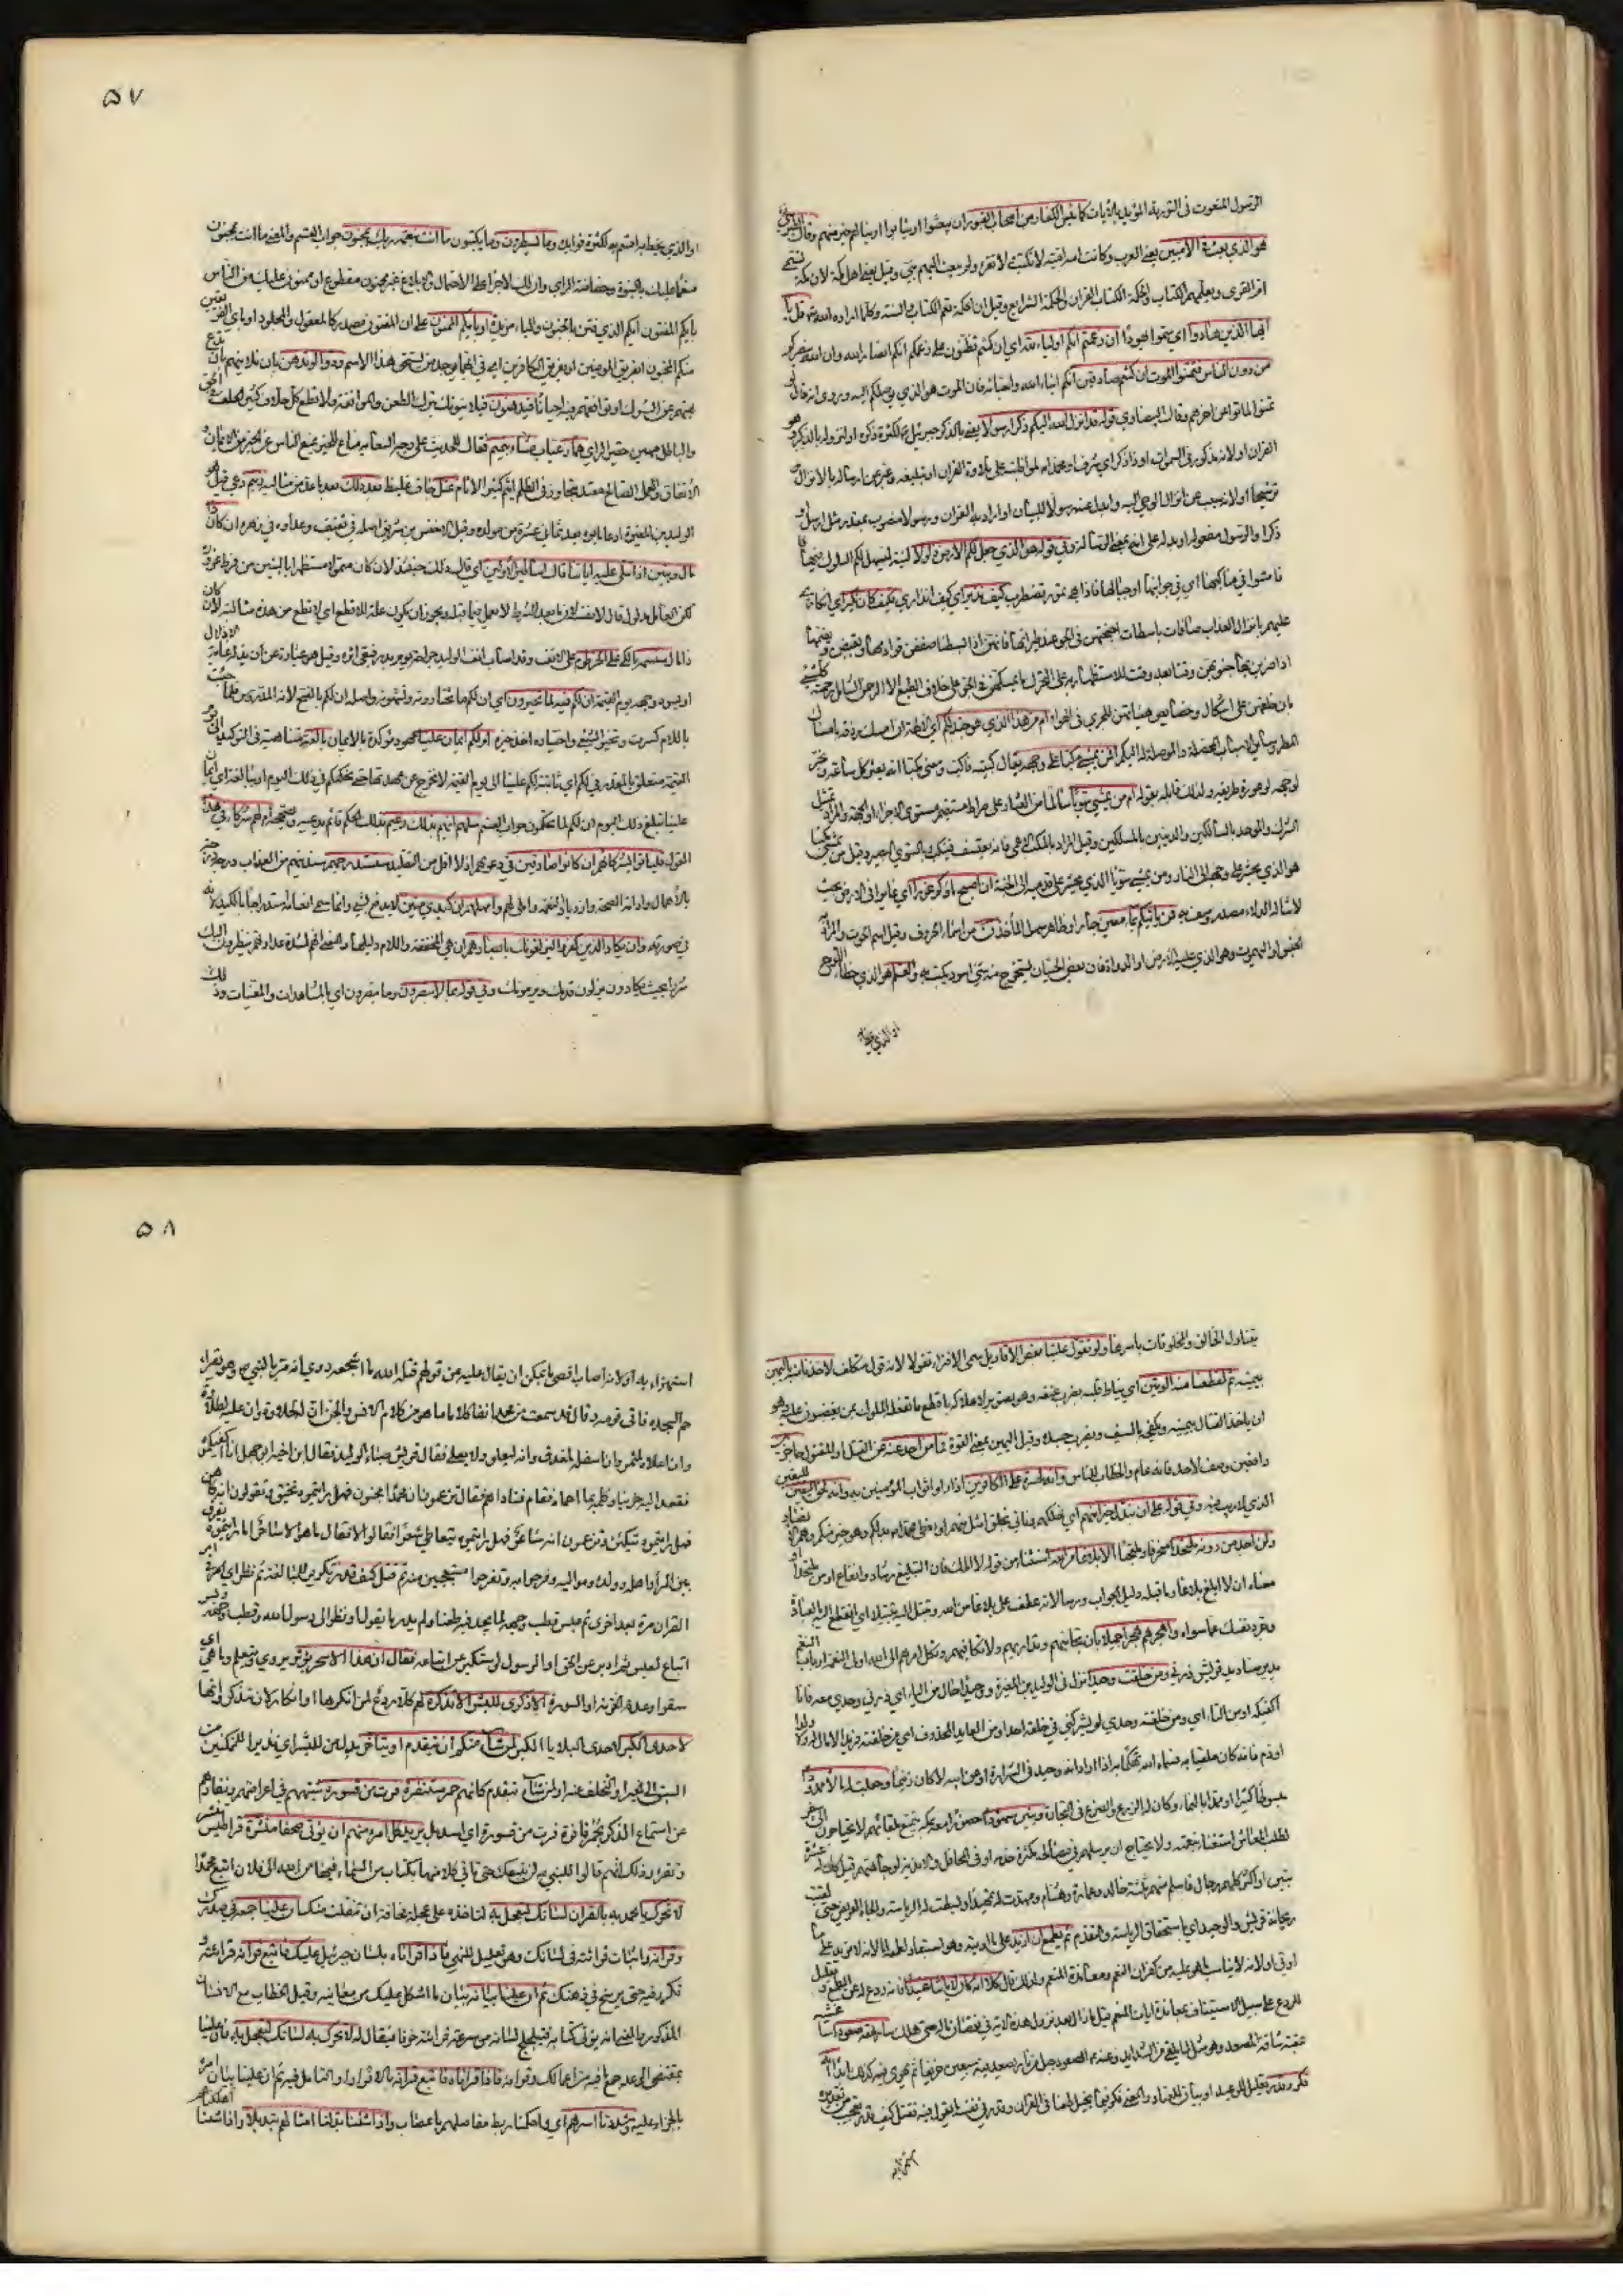 الرسول المنعوت فى التورية المؤيد بالآيات كما يئس الكفار من أصحاب القبور ان يبعثوا او يثابوا او ينالهم خير منهم وقال الطبرسي
هو الذي بعث فى الاميين يعني العرب وكانت امة امية لا تكتب ولا تقرء ولم يبعث اليهم نبي وقيل يعني اهل مكة لان مكة تسمى
ام القرى ويعلمهم الكتاب والحكمة الكتاب القران والحكمة الشرايع وقيل ان الحكمة تعم الكتاب والسنة وكلما اراده الله تعالى قل يا
ايها الذين هادوا اي سموا هودًا ان زعمتم انكم اولياء لله اي ان كنتم تظنون على زعمكم انكم انصار الله وان الله ينصركم
من دون الناس فتمنوا الموت ان كنتم صادقين انكم ابناء الله واحباؤه فان الموت هو الذي يوصلكم اليه وروى انه قال لو
تمنوا لماتوا عن اخرهم وقال البيضاوي قوله قد انزل الله اليكم ذكرا رسولا يعني بالذكر جبرئيل لكثرة ذكره او لنزوله بالذكر وهو
القران او لانه مذكور فى السموات او ذا ذكر اي شرف او محمدا لمواظبته على تلاوة القران او تبليغه وعبر عن ارساله بالانزال
ترشيحا او لانه مسبب عن انزال الوحي اليه وابدل عنه رسولا للبيان او اراد به القران ورسولا منصوب بمقدر مثل ارسل او
ذكرا والرسول مفعوله او بدله على انه بمعنى الرسالة وفي قوله هو الذي جعل لكم الارض ذلولا لينة ليسهل لكم السلوك فيها
فامشوا في مناكبها اي فى جوانبها او جبالها فاذا هي تمور تضطرب كيف نذير اي كيف انذاري فكيف كان نكير اي انكاري
عليهم بانزال العذاب صافات باسطات اجنحتهن فى الجو عند طيرانها فانهن اذا بسطنها صففن قوادمها ويقبضن ويضممنها
اذا ضربن بها جنوبهن وقتا بعد وقت للاستظهار به على التحرك ما يمسكهن فى الجو على خلاف الطبع الا الرحمن الشامل رحمته كل شيء
بان خلقهن على اشكال وخصايص هيأتهن للجري فى الهواء ام من هذا الذي هو جند لكم ان امسك رزقه بامساك
المطر وسائر الاسباب المحصلة والموصلة له اليكم افمن يمشي مكبا على وجهه يقال كببته فاكب ومعنى مكبا انه يعثر كل ساعة ويخر
لوجهه لوعورة طريقه ولذلك قابله بقوله ام من يمشي سويا سالما من العثار على صراط مستقيم مستوي الاجزاء او الجهة والمراد تمثيل
المشرك والموحد بالسالكين والدينين بالمسلكين وقيل المراد بالمكب الاعمى فانه يعتسف فينكب وبالسوي البصير وقيل من يمشي مكبا
هو الذي يحشر على وجهه الى النار ومن يمشي سويا الذي يحشر على قدميه الى الجنة ان اصبح ماؤكم غورا اي غايرا فى الارض بحيث
لا تناله الدلاء مصدر وصف به فمن ياتيكم بماء معين جار او ظاهر سهل المأخذ ن من اسماء الحروف وقيل اسم الحوت والمراد به
الجنس او اليهموت وهو الذي عليه الارض او الدواة فان بعض الحيتان يستخرج منه شيء اسود يكتب به والقلم هو الذي خط اللوح
او الذي يخط
۵۷
او الذي يخط به اقسم به لكثرة فوايده وما يسطرون وما يكتبون ما انت بنعمة ربك بمجنون جواب القسم والمعنى ما انت بمجنون
منعما عليك بالنبوة وحصافة الراي وان لك لاجرا على الاحتمال والابلاغ غير ممنون مقطوع او ممنون عليك من الناس
بايكم المفتون ايكم الذي فتن بالجنون والباء مزيدة او بايكم الجنون على ان المفتون مصدر كالمعقول والمجلود او باي الفريقين
منكم المجنون ابفريق المومنين او بفريق الكافرين اي في ايهما يوجد من يستحق هذا الاسم ودوا لو تدهن بان تلاينهم بان تدع
نهيهم عن الشرك او توافقهم فيه احيانا فيدهنون فيلاينونك بترك الطعن والموافقة ولا تطع كل حلاف كثير الحلف فى الحق
والباطل مهين حقير الراي هماز عياب مشاء بنميم نقال للحديث على وجه السعاية مناع للخير يمنع الناس عن الخير من الايمان و
الانفاق والعمل الصالح معتد متجاوز فى الظلم اثيم كثير الاثام عتل جاف غليظ بعد ذلك بعد ما عد من مثالبه زنيم دعي قيل هو
الوليد بن المغيرة ادعاه ابوه بعد ثماني عشرة من مولده وقيل الاخنس بن شريق اصله فى ثقيف وعداده في زهره ان كان ذا
مال وبنين اذا تتلى عليه اياتنا قال اساطير الاولين اي قال ذلك حينئذ لان كان متمولا مستظهرا بالبنين من فرط غروره
لكن العامل مدلول قال لا نفسه لان ما بعد الشرط لا يعمل فيما قبله ويجوز ان يكون علة للا تطع اي لا تطع من هذه مثالبه لان كان
ذا مال سنسمه بالكي على الخرطوم على الانف وقد اصاب انف الوليد جراحة يوم بدر فبقي اثره وقيل هو عبارة عن ان يذله غاية الاذلال
او يسود وجهه يوم القيمة ان لكم فيه لما تخيرون اي ان لكم ما تختارونه وتشتهونه واصله ان لكم بالفتح لانه المدروس فلما جئت
باللام كسرت وتخير الشيء واختياره اخذ خيره ام لكم ايمان علينا عهود مؤكدة بالايمان بالغة متناهية فى التوكيد الى يوم
القيمة متعلق بالمقدر في لكم اي ثابتة لكم علينا الى يوم القيمة لا نخرج عن عهدتها حتى نحكمكم في ذلك اليوم او ببالغة اي ايمان
علينا تبلغ ذلك اليوم ان لكم لما تحكمون جواب القسم سلهم ايهم بذلك زعيم بذلك الحكم قائم يدعيه ويصححه ام لهم شركاء فى هذا
القول فلياتوا بشركائهم ان كانوا صادقين في دعويهم اذ لا اقل من التقليد سنستدرجهم سندنيهم من العذاب درجة درجة
بالامهال وادامة الصحة وازدياد النعمة واملي لهم وامهلهم ان كيدي متين لا يدفع بشيء وانما سمي انعامه استدراجا بالكيد لانه
في صورته وان يكاد الذين كفروا ليزلقونك بابصارهم ان هي المخففة واللام دليلها والمعنى انهم لشدة عداوتهم ينظرون اليك
شزرا بحيث يكادون يزلون قدمك ويرمونك وفي قوله بما تبصرون وما لا تبصرون اي بالمشاهدات والمغيبات وذلك
يتناول الخالق والمخلوقات باسرها ولو تقول علينا بعض الاقاويل سمي الافتراء تقولا لانه قول متكلف لاخذنا منه باليمين
بيمينه ثم لقطعنا منه الوتين اي نياط قلبه بضرب عنقه وهو تصوير لاهلاكه بافظع ما تفعله الملوك بمن يغضبون عليه وهو
ان ياخذ القتال بيمينه ويكفحه بالسيف ويضرب جيده وقيل اليمين بمعنى القوة فما من احد عنه عن القتل او المقتول حاجزين
دافعين وصف لاحد فانه عام والخطاب للناس وانه لحسرة على الكافرين اذا راوا ثواب المؤمنين به وانه لحق اليقين لليقين
الذي لا ريب فيه وفي قوله على ان نبدل خيرا منهم اي نهلكهم وناتي بخلق امثل منهم او نعطي محمدا بدلكم وهو خير منكم وهم الانصار
ولن اجد من دونه ملتحدا منحرفا وملتجئا الا بلاغا من الله استثناء من قوله لا املك فان التبليغ ارشاد وانفاع او من ملتحدا او
معناه ان لا ابلغ بلاغا وما قبله دليل الجواب ورسالاته عطف على بلاغا من الله وتبتل اليه تبتيلا اي انقطع اليه بالعبادة
وجرد نفسك عما سواه واهجرهم هجرا جميلا بان تجانبهم وتداريهم ولا تكافيهم وتكل امرهم الى الله اولي النعمة ارباب التنعم
يريد صناديد قريش ذرني ومن خلقت وحيدا نزل فى الوليد بن المغيرة ووحيدا حال من الياء اي ذرني وحدي معه فانا
اكفيكه او من التاء اي ومن خلقته وحدي لم يشركني في خلقه احد او من العايد المحذوف اي من خلقته فريدا لا مال له ولا ولد
او ذم فانه كان ملقبا به فسماه الله تهكما به او ارادة انه وحيد فى الشرارة او عن ابيه لانه كان زنيما وجعلت له مالا ممدودا
مبسوطا كثيرا او ممدا بالنماء وكان له الزرع والضرع والتجارة وبنين شهودا حضورا معه بمكة يتمتع بلقائهم لا يحتاجون الى سفر
لطلب المعاش استغناء بنعمته ولا يحتاج ان يرسلهم في مصالحه لكثرة خدمه او فى المحافل والاندية لوجاهتهم قيل كان له عشرة
بنين او اكثر كلهم رجال فاسلم منهم ثلثة خالد وعمارة وهشام ومهدت له تمهيدا وبسطت له الرياسة والجاه العريض حتى لقب
ريحانة قريش والوحيد اي باستحقاق الرياسة والتقدم ثم يطمع ان ازيد على ما اوتيه وهو استبعاد لطمعه اما لانه لا مزيد على ما
اوتي او لانه لا يناسب ما هو عليه من كفران النعم ومعاندة المنعم ولذلك قال كلا انه كان لاياتنا عنيدا فانه ردع له عن الطمع وتعليل
للردع على سبيل الاستيناف بمعاندة ايات المنعم قيل ما زال بعد نزول هذه الاية في نقصان ماله حتى هلك سارهقه صعودا ساغشيه
عقبة شاقة المصعد وهو مثل لما يلقى من الشدايد وعنه عم الصعود جبل من نار يصعد فيه سبعين خريفا ثم يهوي فيه كذلك ابدا انه
فكر وقدر تعليل للوعيد او بيان للعناد والمعنى فكر فيما يخيل طعنا فى القران وقدر في نفسه ما يقول فيه فقتل كيف قدر تعجيب من تقديره
استهزاء به
۵۸
استهزاء به او لانه اصاب اقصى ما يمكن ان يقال عليه من قولهم قتله الله ما اشجعه روي انه مر بالنبي ص وهو يقراء
حم السجدة فاتى قومه وقال لقد سمعت من محمد انفا كلاما ما هو من كلام الانس والجن ان له لحلاوة وان عليه لطلاوة
وان اعلاه لمثمر وان اسفله لمغدق وانه ليعلو ولا يعلى فقال قريش صباء الوليد فقال ابن اخيه ابو جهل انا اكفيكموه
فقعد اليه حزينا وكلمه بما احماه فقام فناداهم فقال تزعمون ان محمدا مجنون فهل رايتموه يخنق وتقولون انه كاهن
فهل رايتموه يتكهن وتزعمون انه شاعر فهل رايتموه يتعاطى شعرا فقالوا لا فقال ما هو الا ساحر اما رايتموه يفرق
بين المرأ واهله وولده ومواليه ففرحوا به وتفرقوا متعجبين منه ثم قتل كيف قدر تكرير للمبالغة ثم نظر اي فى امر
القران مرة بعد اخرى ثم عبس قطب وجهه لما لم يجد فيه طعنا ولم يدر ما يقول او نظر الى رسول الله وقطب وجهه وبسر
اتباع لعبس ثم ادبر عن الحق او الرسول واستكبر عن اتباعه فقال ان هذا الا سحر يؤثر يروى ويتعلم وما هي اي
سقر او عدة الخزنة او السورة الا ذكرى للبشر الا تذكرة لهم كلا ردع لمن انكرها او انكار لان يتذكروا بها
لاحدى الكبر لاحدى البلايا الكبر لمن شاء منكم ان يتقدم او يتاخر بدل من للبشر اي نذيرا للمتمكنين من
السبق الى الخير او التخلف عنه او لمن شاء يتقدم كانهم حمر مستنفرة فرت من قسورة شبههم في اعراضهم ونفارهم
عن استماع الذكر بحمر نافرة فرت من قسورة اي اسد بل يريد كل امرء منهم ان يؤتى صحفا منشرة قراطيس تنشر
وتقرء وذلك انهم قالوا للنبي ص لن نتبعك حتى تاتي كلا منا بكتاب من السماء فيها من الله الى فلان اتبع محمدا
لا تحرك يا محمد به بالقران لسانك لتعجل به لتاخذه على عجلة مخافة ان ينفلت منك ان علينا جمعه في صدرك
وقرانه واثبات قراءته فى لسانك وهو تعليل للنهي فاذا قراناه بلسان جبرئيل عليك فاتبع قرانه قراءته و
تكرر فيه حتى يرسخ في ذهنك ثم ان علينا بيانه بيان ما اشكل عليك من معانيه وقيل الخطاب مع الانسان
المذكور والمعنى انه يؤتى كتابه فيتلجلج لسانه من سرعة قراءته خوفا فيقال له لا تحرك به لسانك لتعجل به فان علينا
بمقتضى الوعد جمع ما فيه من اعمالك وقراءته فاذا قراناه فاتبع قرانه بالاقرار او التامل فيه ثم ان علينا بيان امره
بالجزاء عليه وشددنا اسرهم اي واحكمنا ربط مفاصلهم بالاعصاب واذا شئنا بدلنا امثالهم تبديلا واذا شئنا اهلكناهم